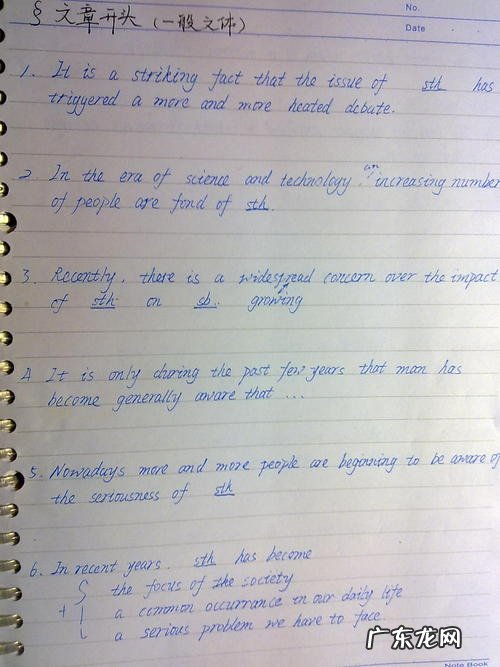 No.
Date
§ 文章开头 (一般文体)
1. It is a striking fact that the issue of sth has
triggered a more and more heated debate.
2. In the era of science and technology, an increasing number
of people are fond of sth.
3. Recently, there is a widespread concern over the impact
of sth on sb. growing
4 It is only during the past few years that man has
become generally aware that ...
5. Nowadays more and more people are beginning to be aware of
the seriousness of sth
6. In recent years. sth has become
the focus of the society
+ a common occurrance in our daily life
a serious problem we have to face.
广东龙网
Note Book